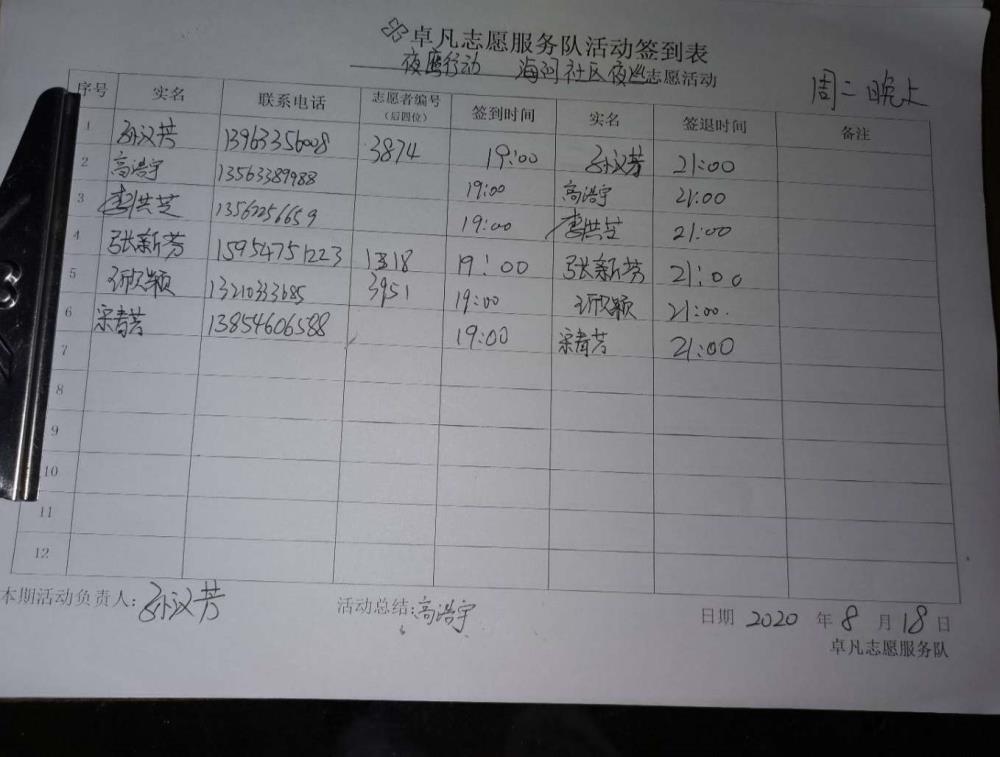 卓凡志愿服务队活动签到表
夜鹰行动 海河社区夜巡志愿活动
周二晚上
序号 实名 联系电话 志愿者编号（后四位） 签到时间 实名 签退时间 备注
1 孙汉芳 13963356008 3874 19:00 孙汉芳 21:00
2 高浩宇 13563389988 19:00 高浩宇 21:00
3 李洪芝 13562256659 19:00 李洪芝 21:00
4 张新芳 15954751223 1318 19:00 张新芳 21:00
5 颖 13210333685 3951 19:00 颖 21:00
6 宋青芳 13854606588 19:00 宋青芳 21:00
7
8
9
10
11
12
本期活动负责人: 孙汉芳 活动总结: 高浩宇 日期 2020 年 8 月 18 日
卓凡志愿服务队